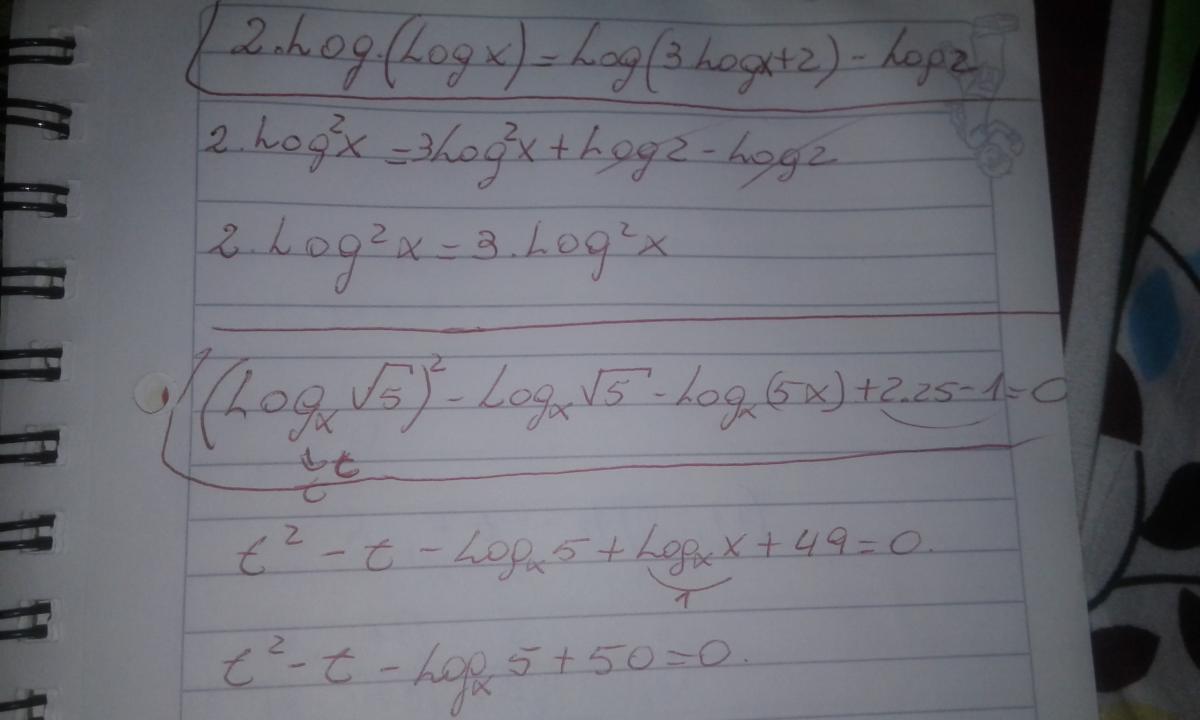 2.Log.(Log x) = Log(3Logx+2) - Log2
2.Log²x = 3Log²x + Log2 - Log2
2.Log²x = 3.Log²x
(Logₓ√5)² - Logₓ√5 - Logₓ(5x) + 2.25-1=0
t
t² - t - Logₓ5 + Logₓx + 49 = 0.
1
t² - t - Logₓ5 + 50 = 0.